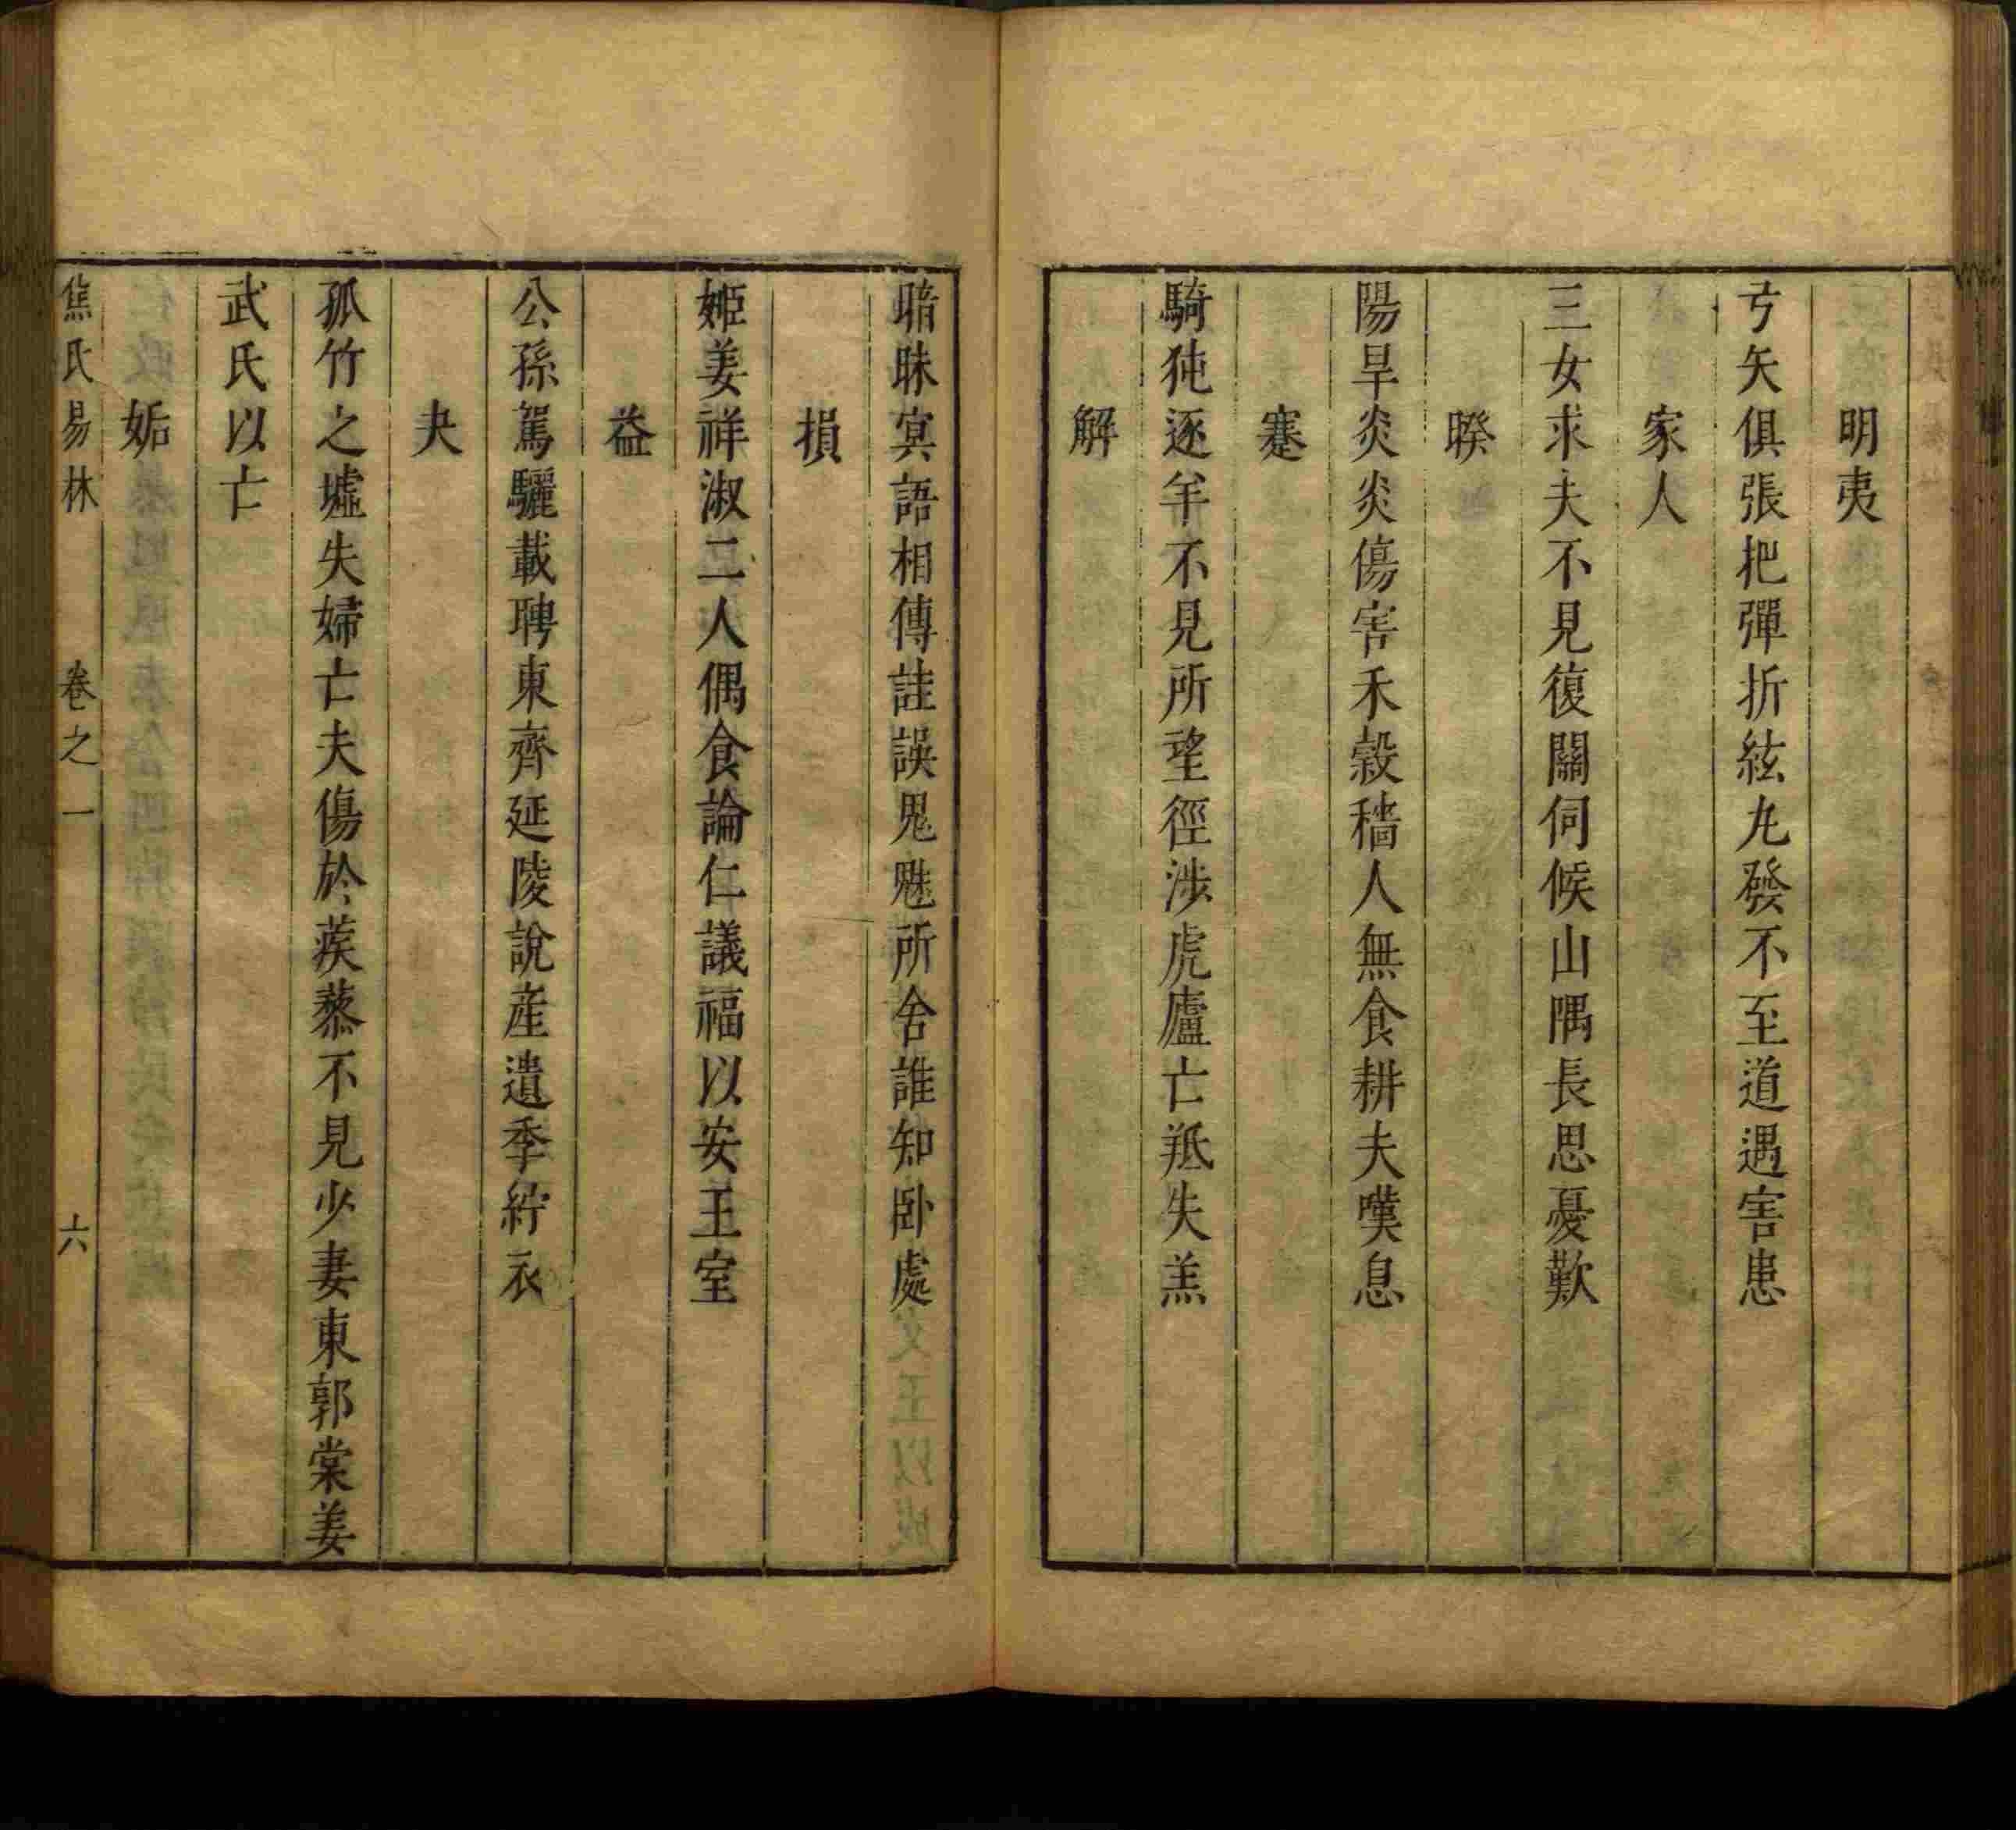 明夷
弓矢俱張把彈折絃丸發不至道遇害患
家人
三女求夫不見復關伺候山隅長思憂歎
暌
陽旱炎炎傷害禾穀穡人無食耕夫嘆息
蹇
騎狏逐羊不見所望徑涉虎廬亡羝失羔
解
暗昧冥語相傳詿誤鬼魅所舍誰知臥處
損
姬姜祥淑二人偶食論仁議福以安王室
益
公孫駕驪載聘東齊延陵說産遺季紵衣
夬
孤竹之墟失婦亡夫傷於蒺藜不見少妻東郭棠姜
武氏以亡
姤
焦氏易林 卷之一 六